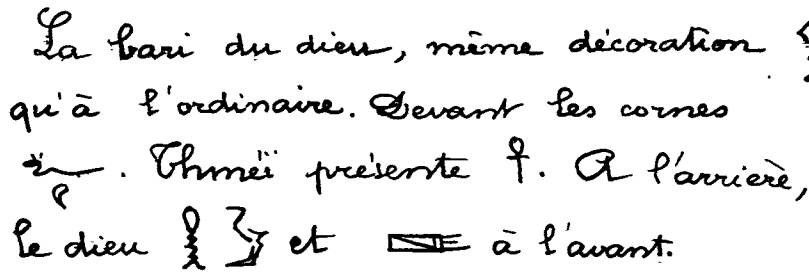 La bari du dieu, même décoration
qu'à l'ordinaire. Devant les cornes
. Thmëï présente ☥. A l'arrière,
le dieu et à l'avant.